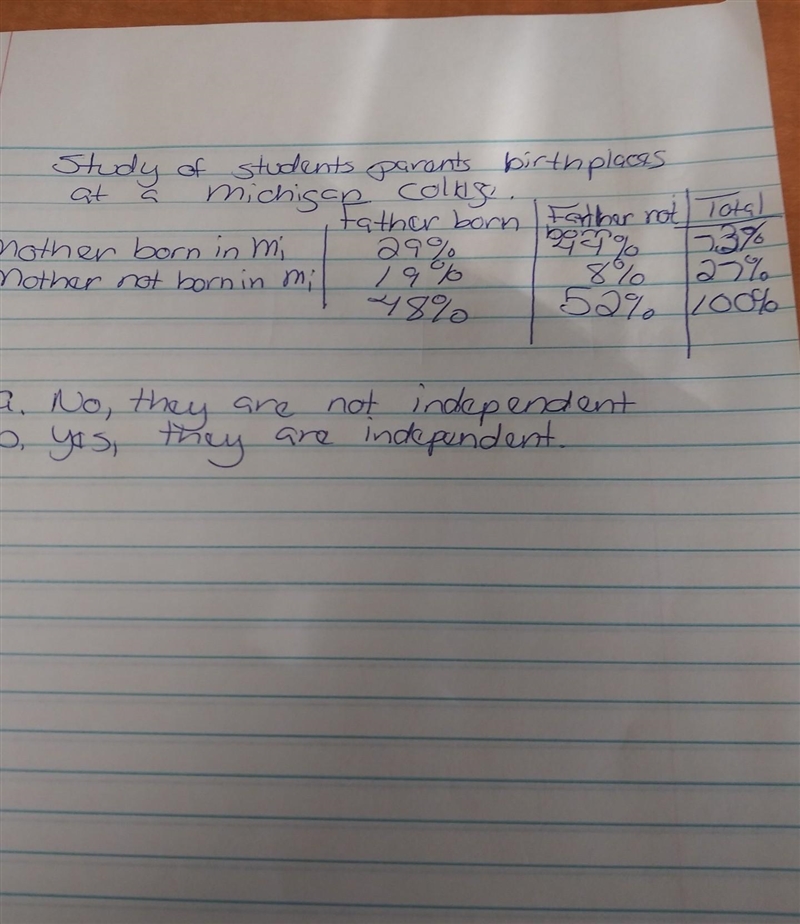 Study of students parents birthplaces
at a michigan collge.
Father born | Farther not | Total
born
mother born in mi | 29% | 44% | 73%
mother not born in mi | 19% | 8% | 27%
48% | 52% | 100%
a. No, they are not independent
b. yes, they are independent.